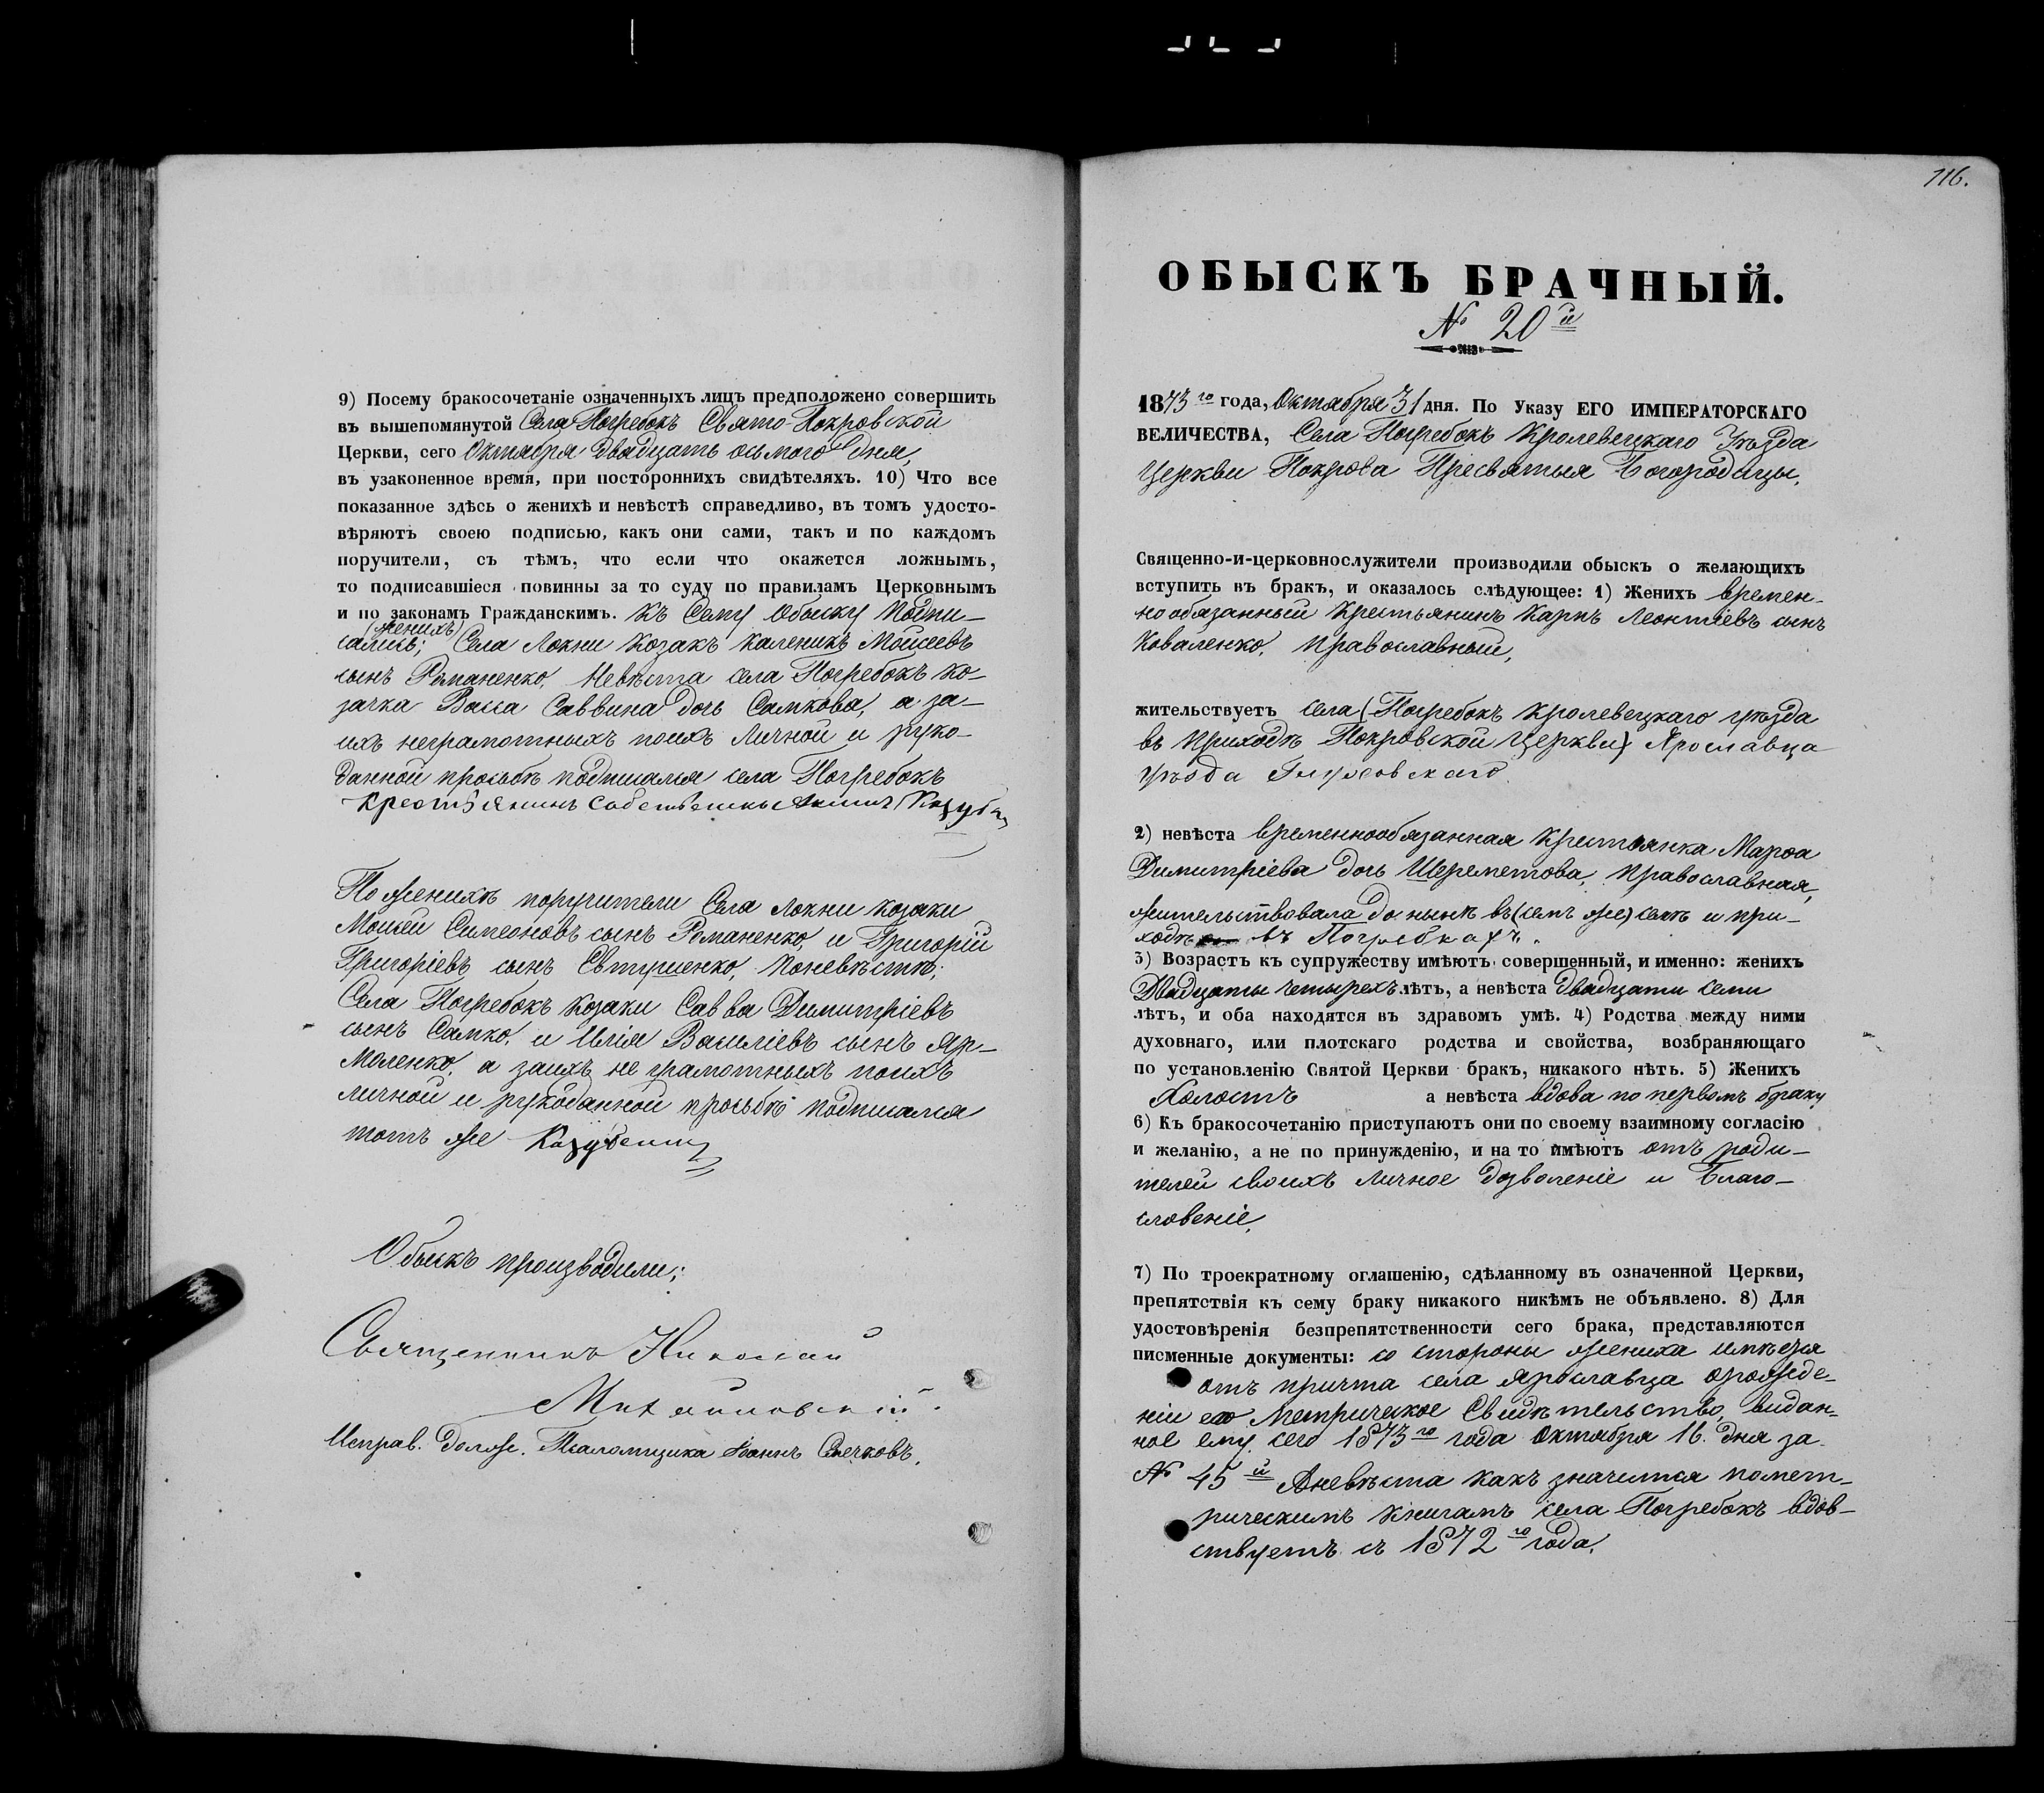 9) Посему бракосочетаніе означенныхъ лицъ предположено совершить
въ вышепомянутой Села Погребокъ Свято Покровской
Церкви, сего Октября двадцать осьмого дня,
въ узаконенное время, при постороннихъ свидѣтеляхъ. 10) Что все
показанное здѣсь о женихѣ и невѣстѣ справедливо, въ томъ удосто-
вѣряютъ своею подписью, какъ они сами, такъ и по каждомъ
поручители, съ тѣмъ, что если что окажется ложнымъ,
то подписавшіеся повинны за то суду по правиламъ Церковнымъ
и по законамъ Гражданскимъ. Къ Сему Обыску Подпи-
женихъ
сались; Села Локни козакъ Каленикъ Моисеевъ
сынъ Романенко. Невѣста села Погребокъ ко-
зачка Васса Саввина дочь Самкова, а за-
ихъ неграмотныхъ поихъ личной и руко-
данной просьбѣ подписался села Погребокъ
Крестьянинъ
По женихѣ поручители Села Локни козаки
Моисей Симеоновъ сынъ Романенко, и Григорій
Григоріевъ сынъ Евтушенко, Поневѣстѣ;
Села Погребокъ козаки Савва Димитріевъ
сынъ Самко, и Илія Василіевъ сынъ Яр-
моленко, а заихъ не грамотныхъ поихъ
личной и рукоданной просьбѣ подписался
тотъ же
Обыскъ производили;
Священникъ Николай
Исправ. долж. Псаломщика Іоаннъ
116.
ОБЫСКЪ БРАЧНЫЙ.
№ 20й
1873го года, Октября 31 дня. По Указу ЕГО ИМПЕРАТОРСКАГО
ВЕЛИЧЕСТВА, Села Погребокъ Кролевецкаго Уѣзда
Церкви Покрова Пресвятыя Богородицы,
Священно-и-церковнослужители производили обыскъ о желающихъ
вступить въ бракъ, и оказалось слѣдующее: 1) Женихъ времен-
но обязанный Крестьянинъ Карпъ Леонтіевъ сынъ
Коваленко, православный,
жительствуетъ села (Погребокъ Кролевецкаго уѣзда
въ приходѣ Покровской Церкви) Ярославца
уѣзда Глуховскаго.
2) невѣста временнообязанная Крестьянка Марѳа
Димитріева дочь Шереметова, православная,
жительствовала до нынѣ въ (семъ же) селѣ и при-
ходѣ въ Погребкахъ.
3) Возрастъ къ супружеству имѣютъ совершенный, и именно: женихъ
Двадцати четырехъ лѣтъ, а невѣста двадцати семи
лѣтъ, и оба находятся въ здравомъ умѣ. 4) Родства между ними
духовнаго, или плотскаго родства и свойства, возбраняющаго
по установленію Святой Церкви бракъ, никакого нѣтъ. 5) Женихъ
Холостъ а невѣста вдова по первомъ браку
6) Къ бракосочетанію приступаютъ они по своему взаимному согласію
и желанію, а не по принужденію, и на то имѣютъ отъ роди-
телей своихъ личное дозволеніе и благо-
словеніе,
7) По троекратному оглашенію, сдѣланному въ означенной Церкви,
препятствія къ сему браку никакого никѣмъ не объявлено. 8) Для
удостовѣренія безпрепятственности сего брака, представляются
писменные документы: со стороны жениха имѣется
отъ причта села Ярославца орожде-
ніи его Метрическое Свидѣтельство, видан-
ное ему сего 1873го года Октября 16. дня за
№ 45й Аневѣста какъ значится помет-
рическимъ книгамъ села Погребокъ вдов-
ствуетъ съ 1872го года.